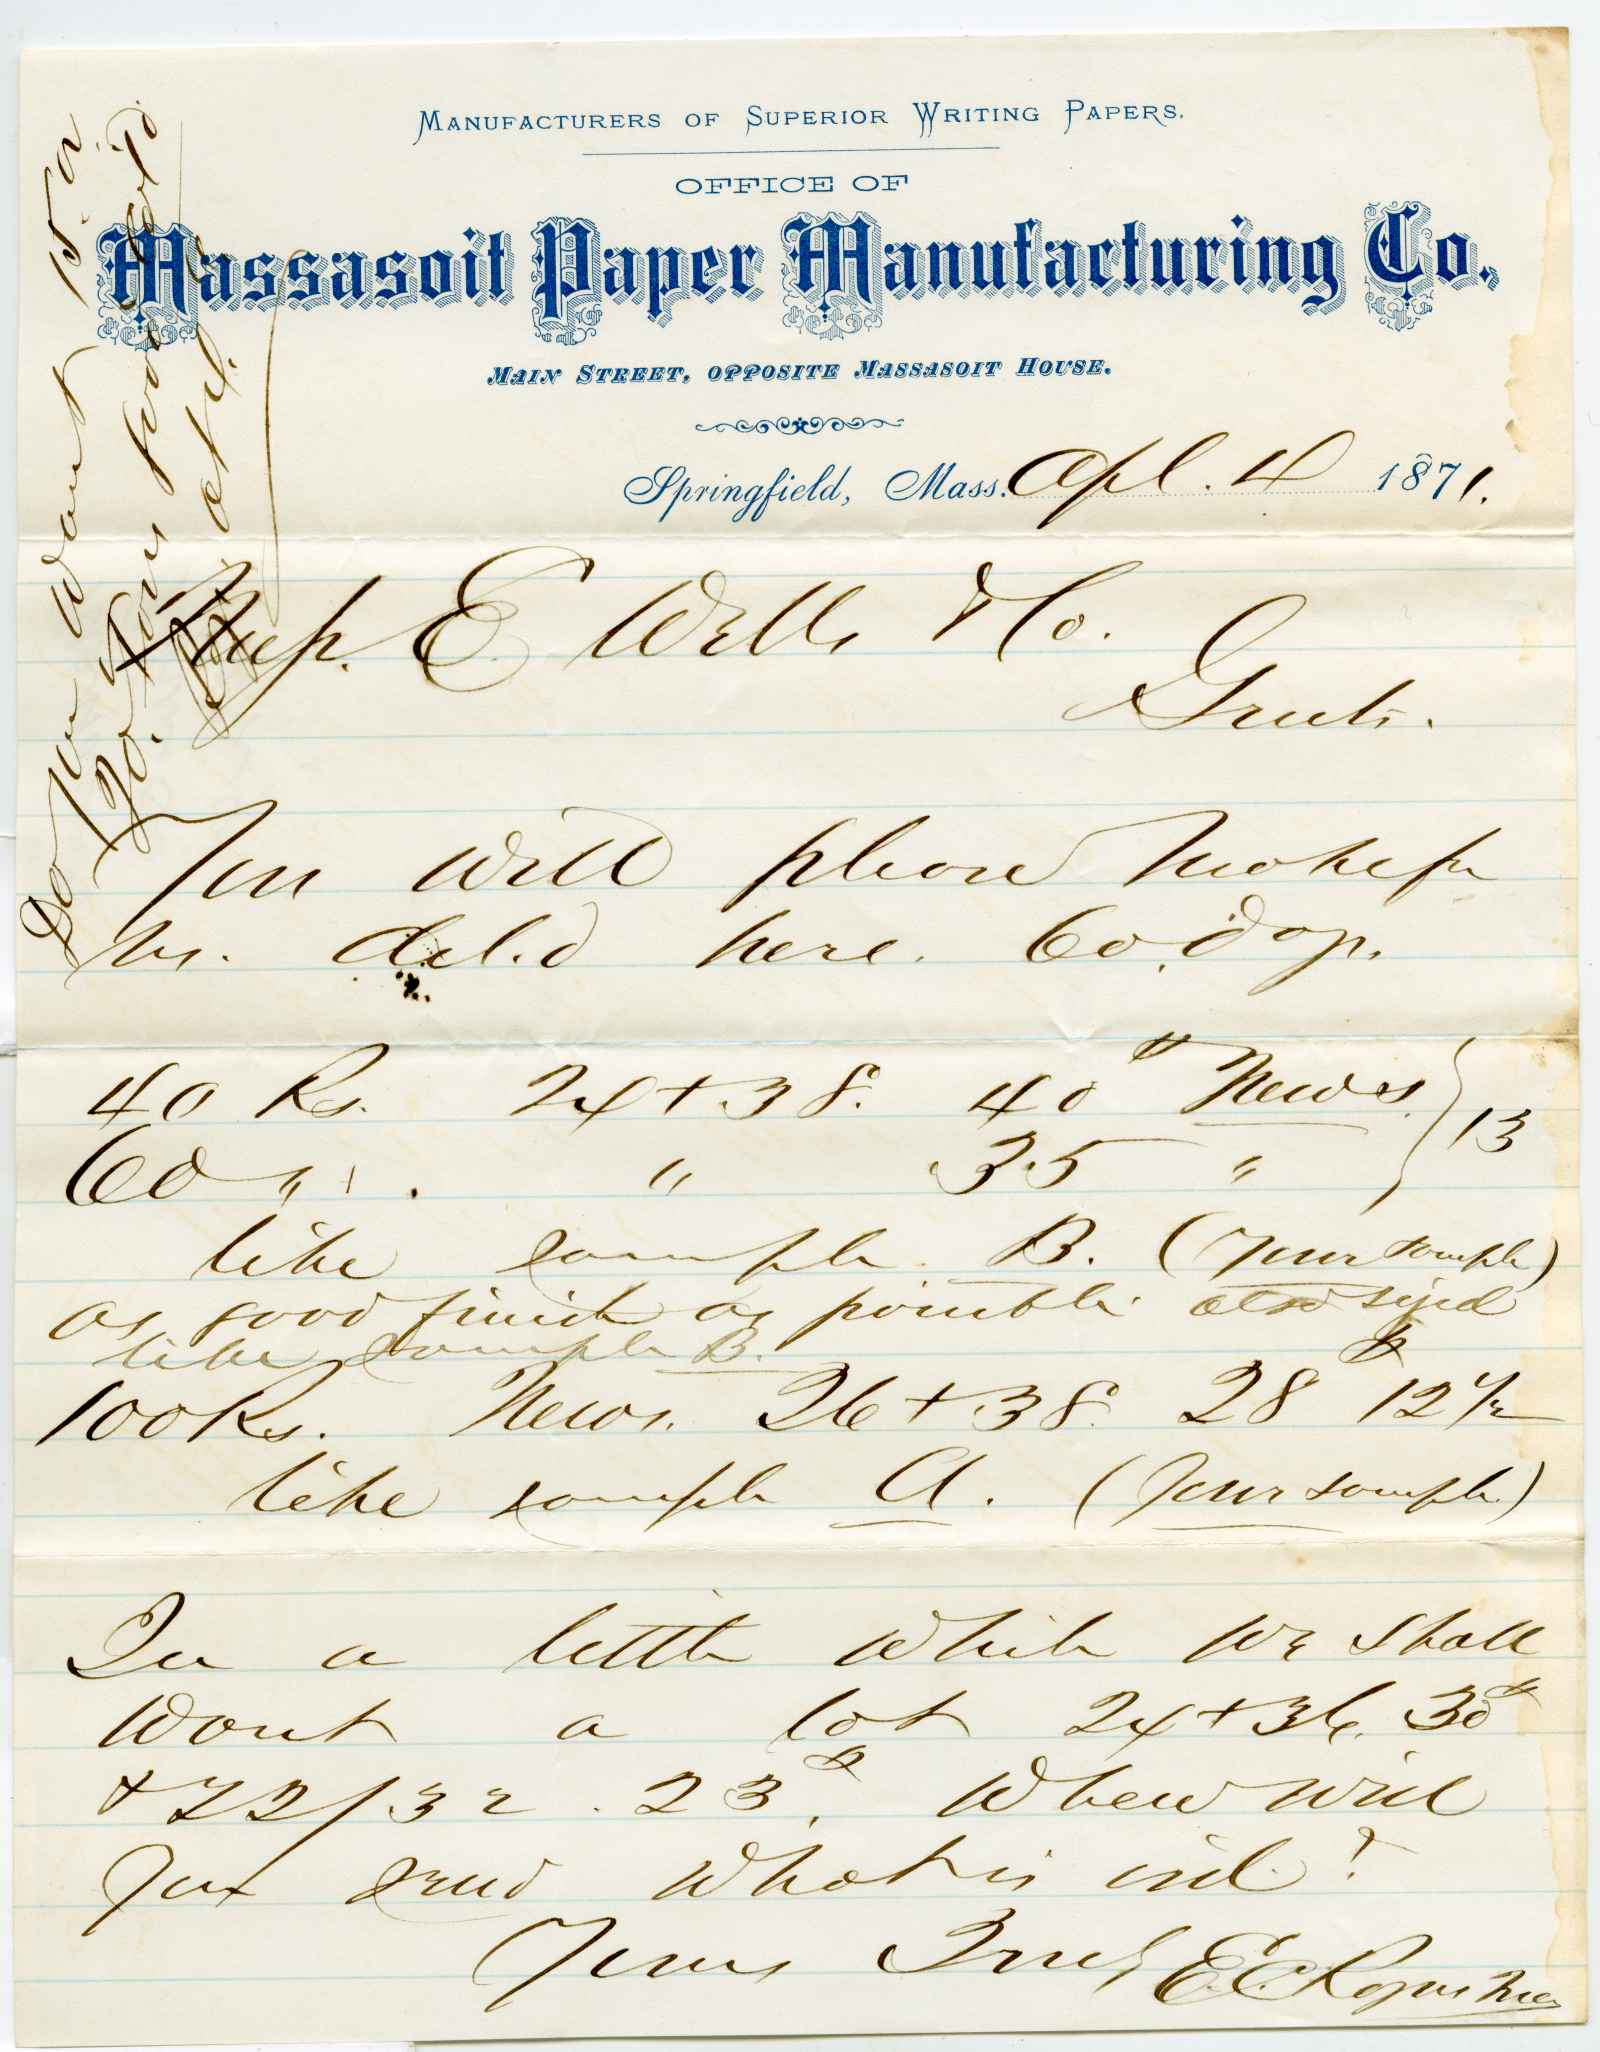 Manufacturers of Superior Writing Papers.
Office of
Massasoit Paper Manufacturing Co.,
Main Street, opposite Massasoit House.
Springfield, Mass. Apl. 4 1871.
E Wells & Co.
Gents.
You will please make for
us. deld here. 60. days.
40 Rs. 24 + 38. 40# News } 13
60 " " 35 "
like sample B. (Your sample)
as good finish as possible also sized
like sample B.
100 Rs. News. 26 + 38. 28# 12 1/2
like sample A. (Your sample)
In a little while we shall
want a lot 24 + 36. 30#
+ 22/32. 23#. When will
you send what is
Yours Truly E.C. Rogers
Do you want 15. or
20. tons
at